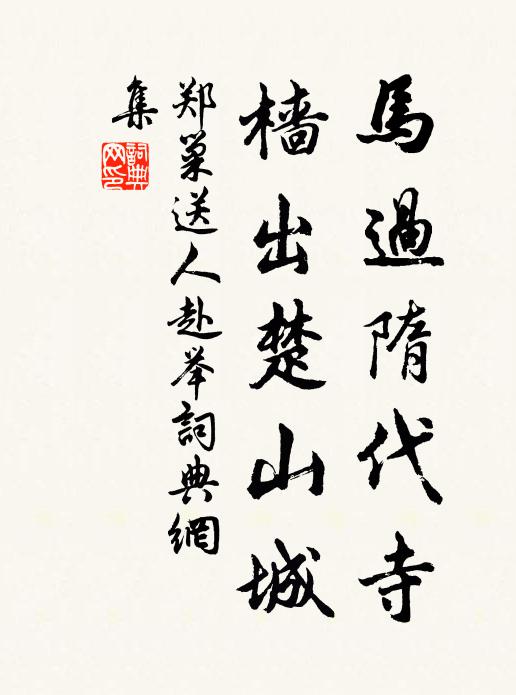 馬過隋代寺
檣出楚山城
郑巢送人赴举詞典網
集
詞典网印